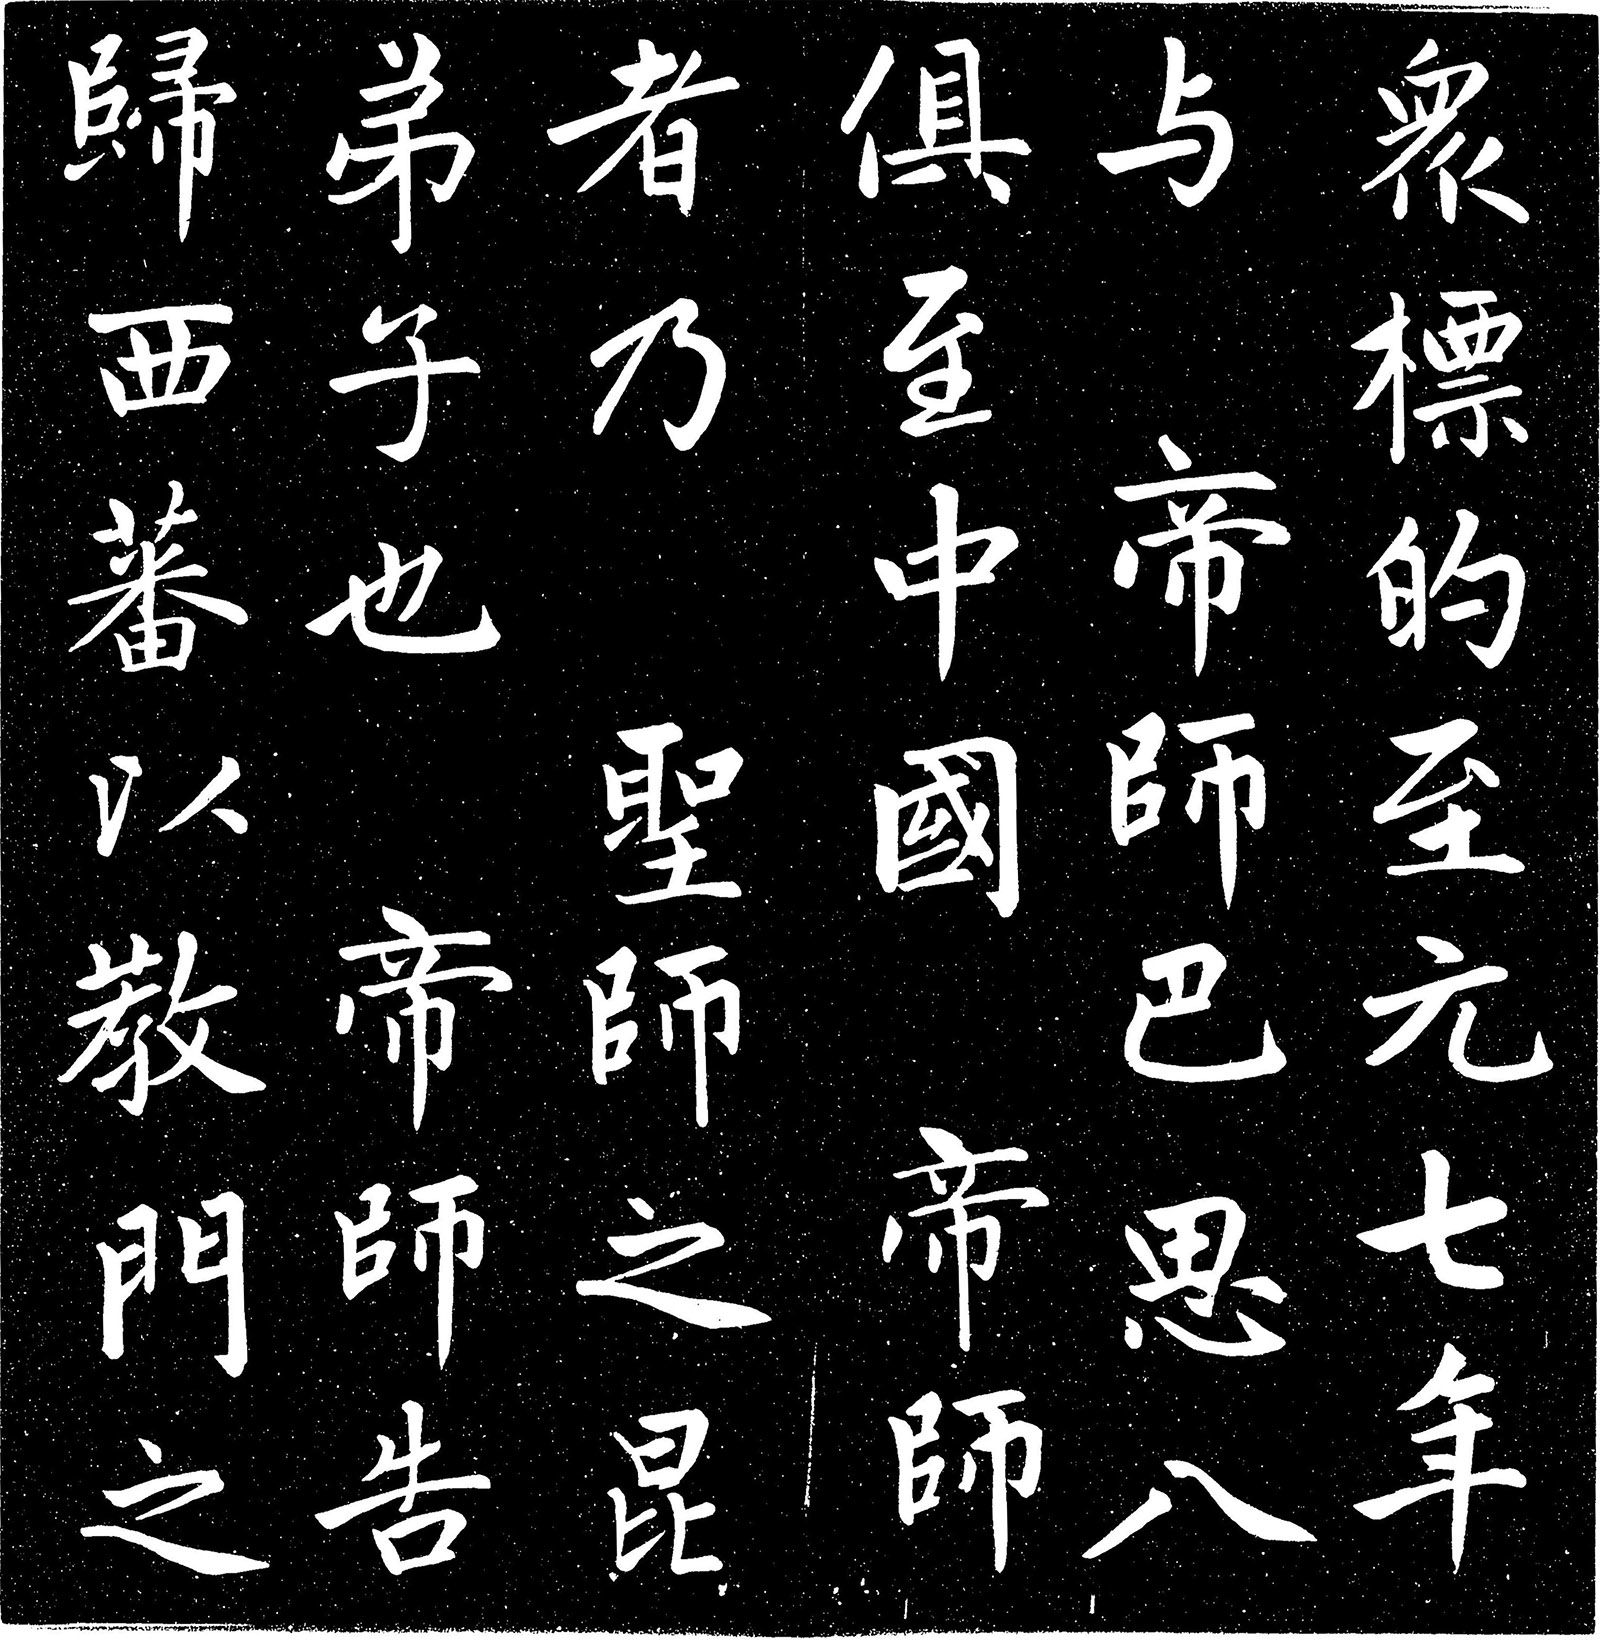 衆標的至元七年
与帝師巴思八
俱至中國帝師
者乃聖師之昆
弟子也帝師告
歸西蕃以教門之